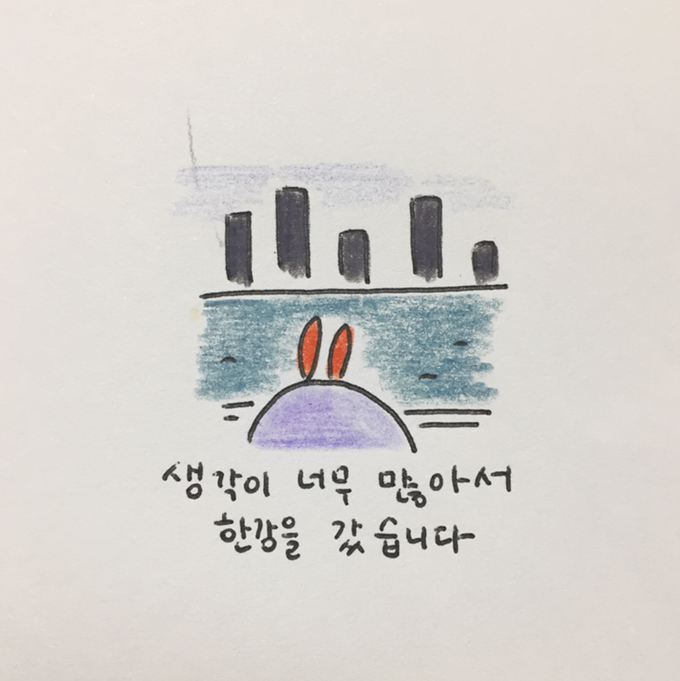 생각이 너무 많아서
한강을 갔습니다